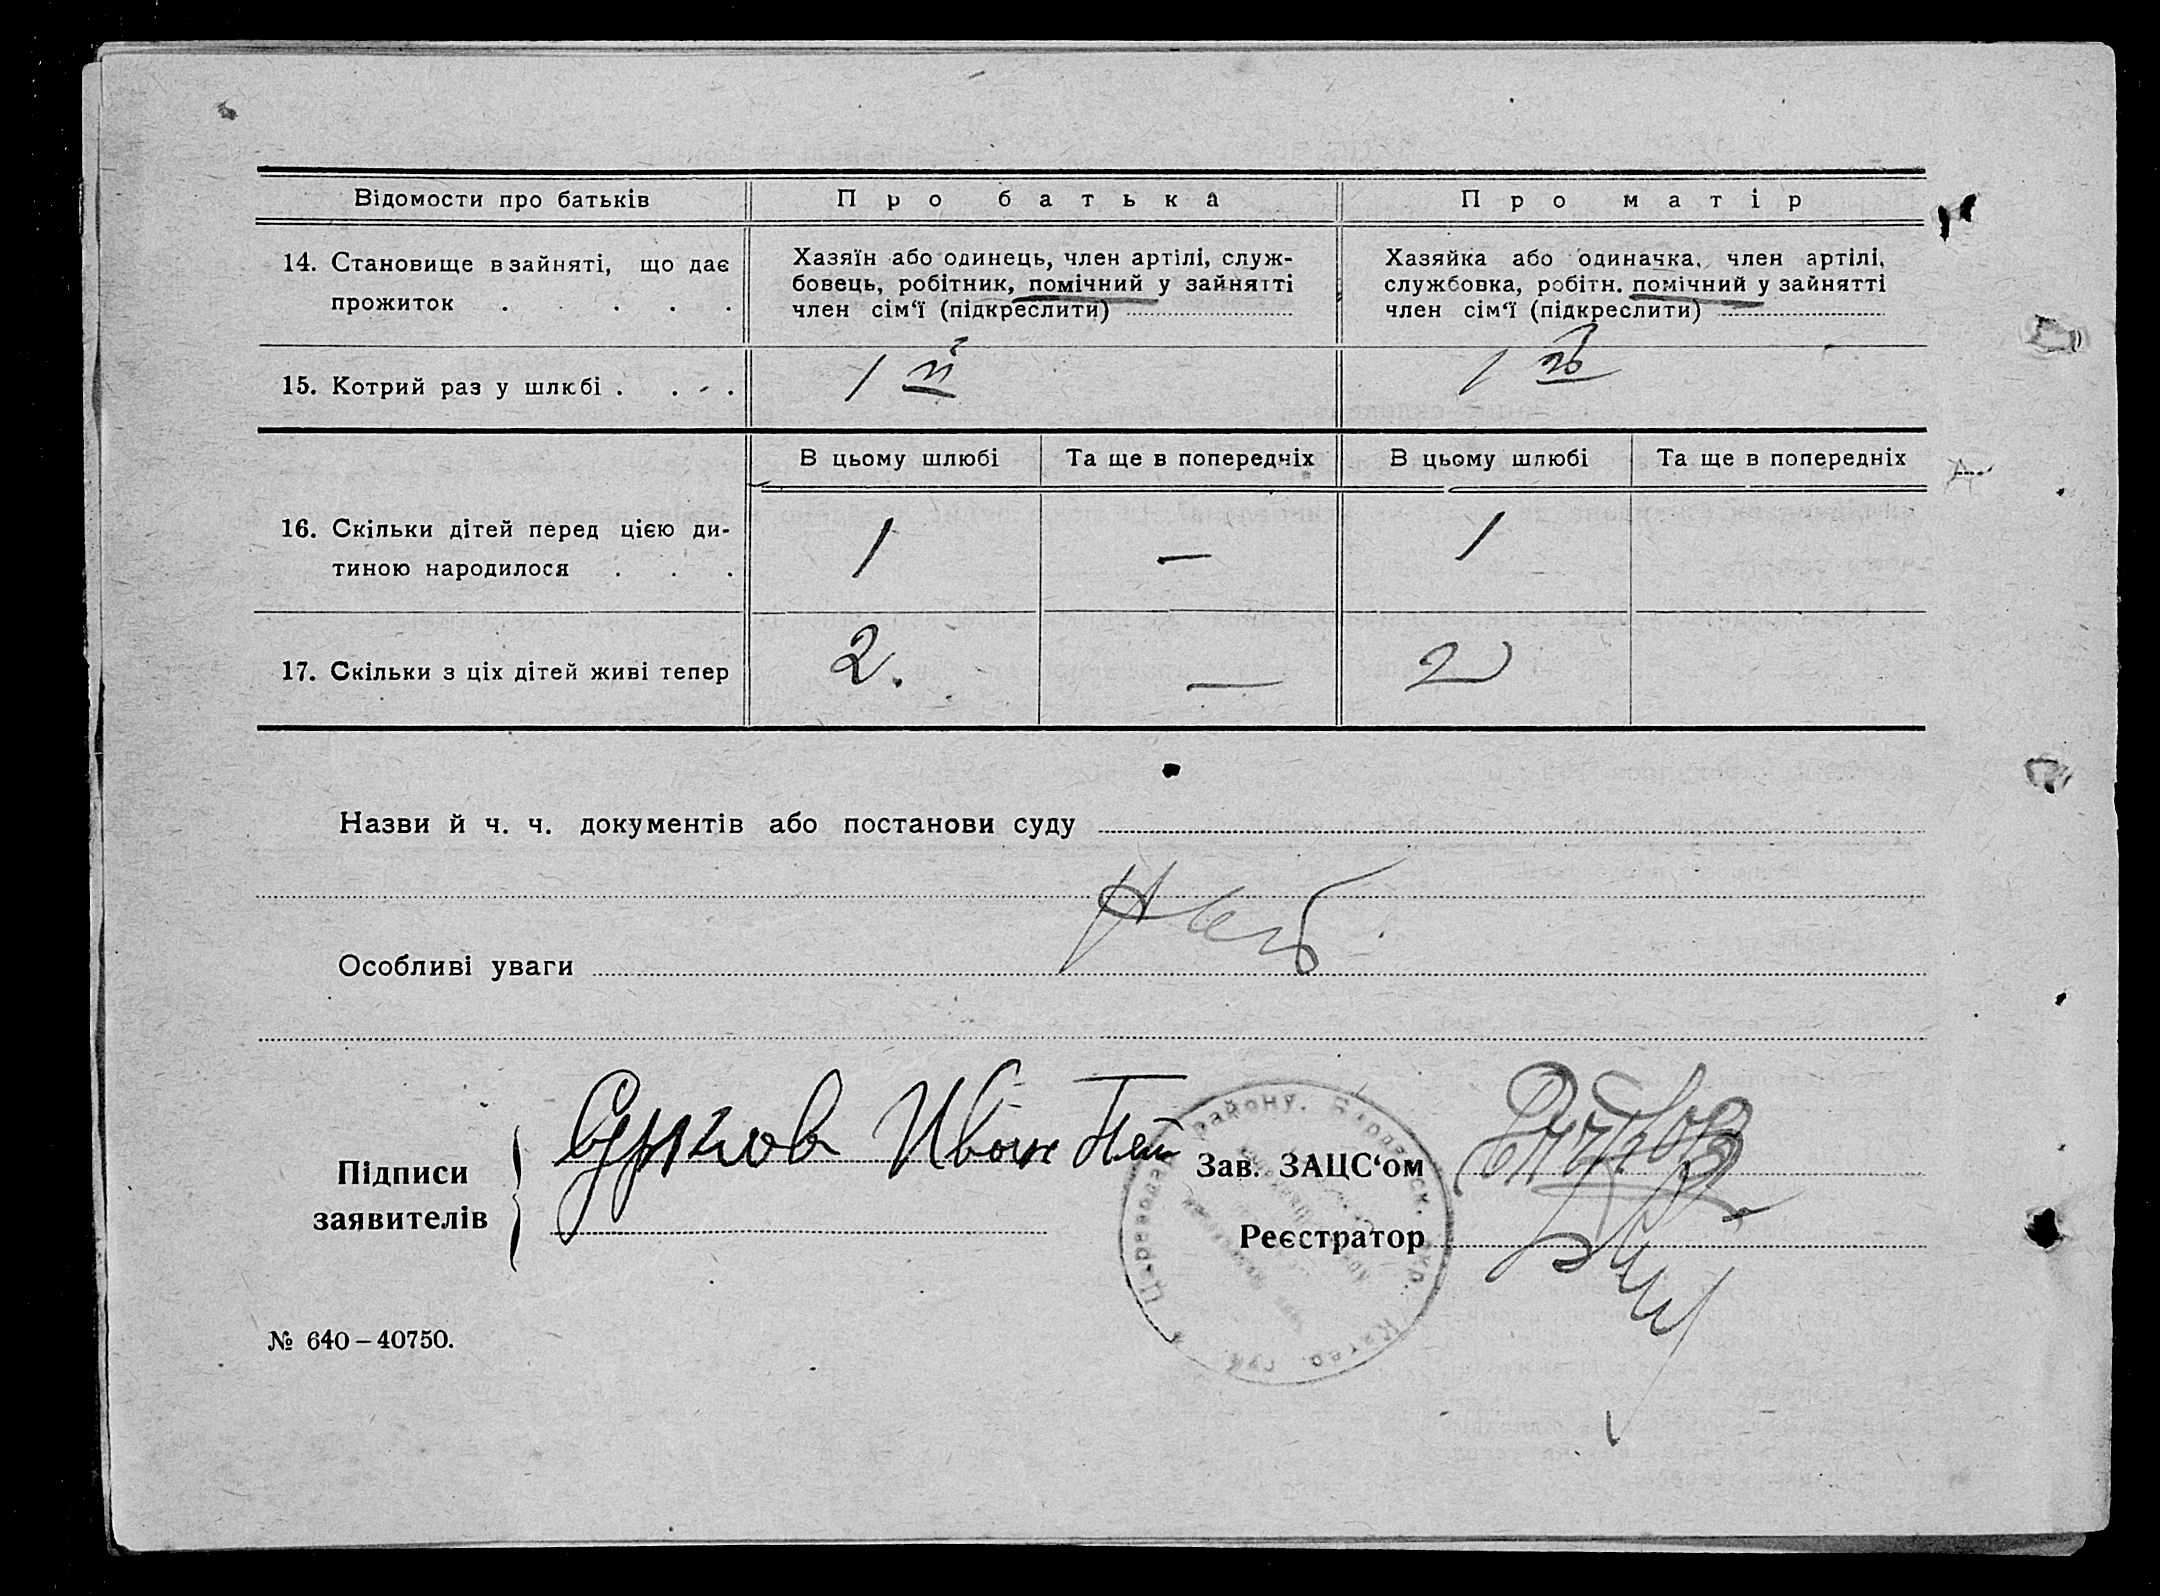 Відомости про батьків Про батька Про матір
14. Становище в зайняті, що дає прожиток . . . . .
Хазяїн або одинець, член артілі, служ-
бовець, робітник, помічний у зайнятті
член сім‘ї (підкреслити)
Хазяйка або одиначка, член артілі,
службовка, робітн. помічний у зайнятті
член сім‘ї (підкреслити)
15. Котрий раз у шлюбі . . . . 1 й 1 й
В цьому шлюбі Та ще в попередніх В цьому шлюбі Та ще в попередніх
16. Скільки дітей перед цією ди-
тиною народилося . . . 1 — 1
17. Скільки з ціх дітей живі тепер 2. — 2
Назви й ч. ч. документів або постанови суду
Нет
Особливі уваги
Підписи
заявителів
Сурков Иван Пет
Зав. ЗАЦС‘ом
Реєстратор
району. Бердянск. окр.
№ 640–40750.